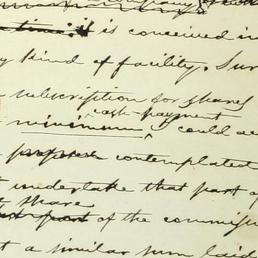 company
time: it is conceived in
kind of facility. Sur
subscription for shares
cash-payment
minimum could
proposed contemplated
undertake that part of
share
of the commission
t a similar sum laid